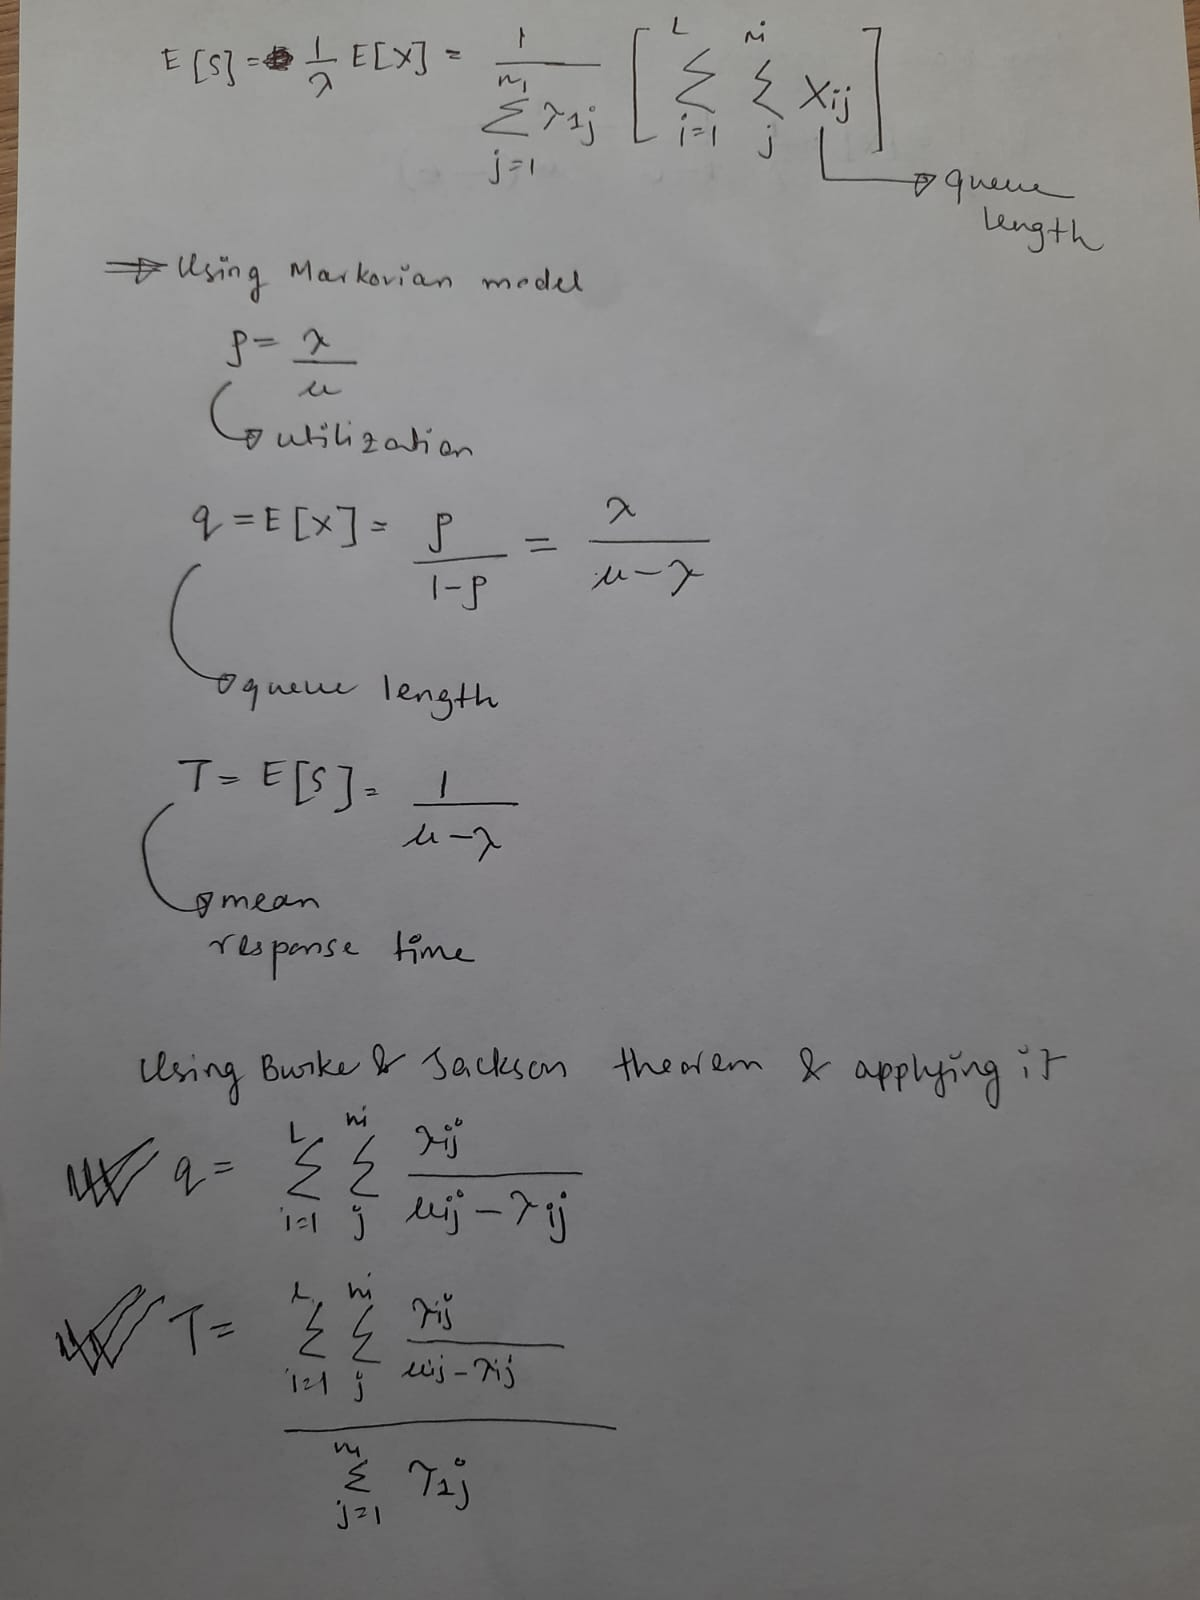 E[S] = 1/λ E[X] = 1 / ∑_{j=1}^{n_1} λ_{1j} [ ∑_{i=1}^{L} ∑_{j}^{n_i} X_{ij} ]
→ queue
length
⇒ Using Markovian model
ρ = λ/μ
→ utilization
q = E[X] = ρ/(1-ρ) = λ/(μ-λ)
→ queue length
T = E[S] = 1/(μ-λ)
→ mean
response time
Using Burke & Jackson theorem & applying it
q = ∑_{i=1}^{L} ∑_{j}^{n_i} λ_{ij}/(μ_{ij} - λ_{ij})
T = ∑_{i=1}^{L} ∑_{j}^{n_i} λ_{ij}/(μ_{ij} - λ_{ij})
/ ∑_{j=1}^{n_1} λ_{1j}